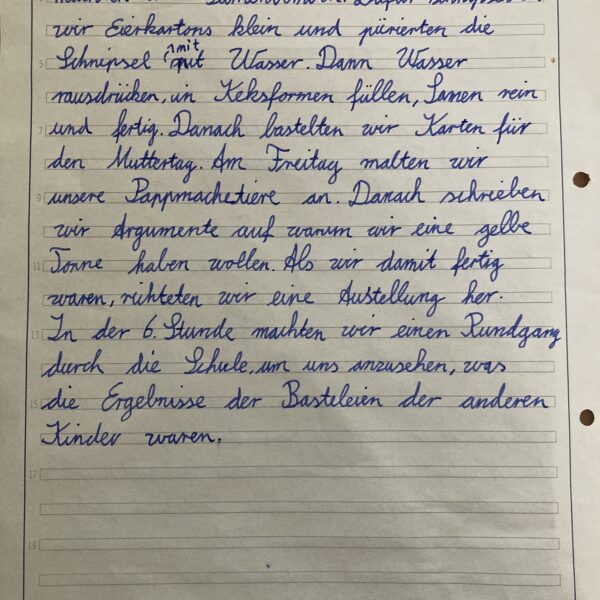 wir Eierkartons klein und pürierten die
Schnipsel mit Wasser. Dann Wasser
rausdrücken, in Keksformen füllen, Samen rein
und fertig. Danach bastelten wir Karten für
den Muttertag. Am Freitag malten wir
unsere Pappmachetiere an. Danach schrieben
wir Argumente auf warum wir eine gelbe
Tonne haben wollen. Als wir damit fertig
waren, richteten wir eine Austellung her.
In der 6. Stunde machten wir einen Rundgang
durch die Schule, um uns anzusehen, was
die Ergebnisse der Basteleien der anderen
Kinder waren.
5
7
9
11
13
15
17
19